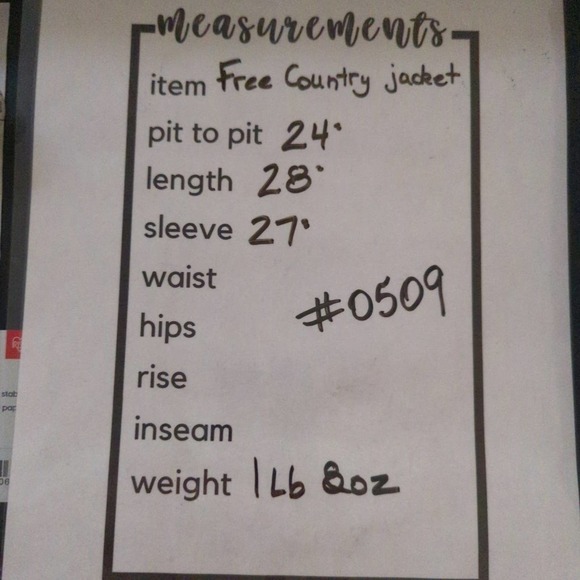 measurements
item Free Country jacket
pit to pit 24"
length 28"
sleeve 27"
waist
#0509
hips
rise
inseam
weight 1 Lb 8oz